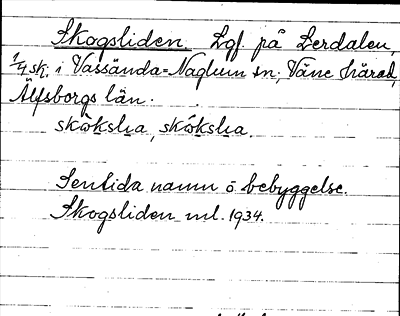 Skogsliden Lgf. på Lerdalen,
1/4 sk. i Vassända-Naglum sn, Väne härad,
Älfsborgs län.
Sentida namn o bebyggelse.
Skogsliden ml. 1934.